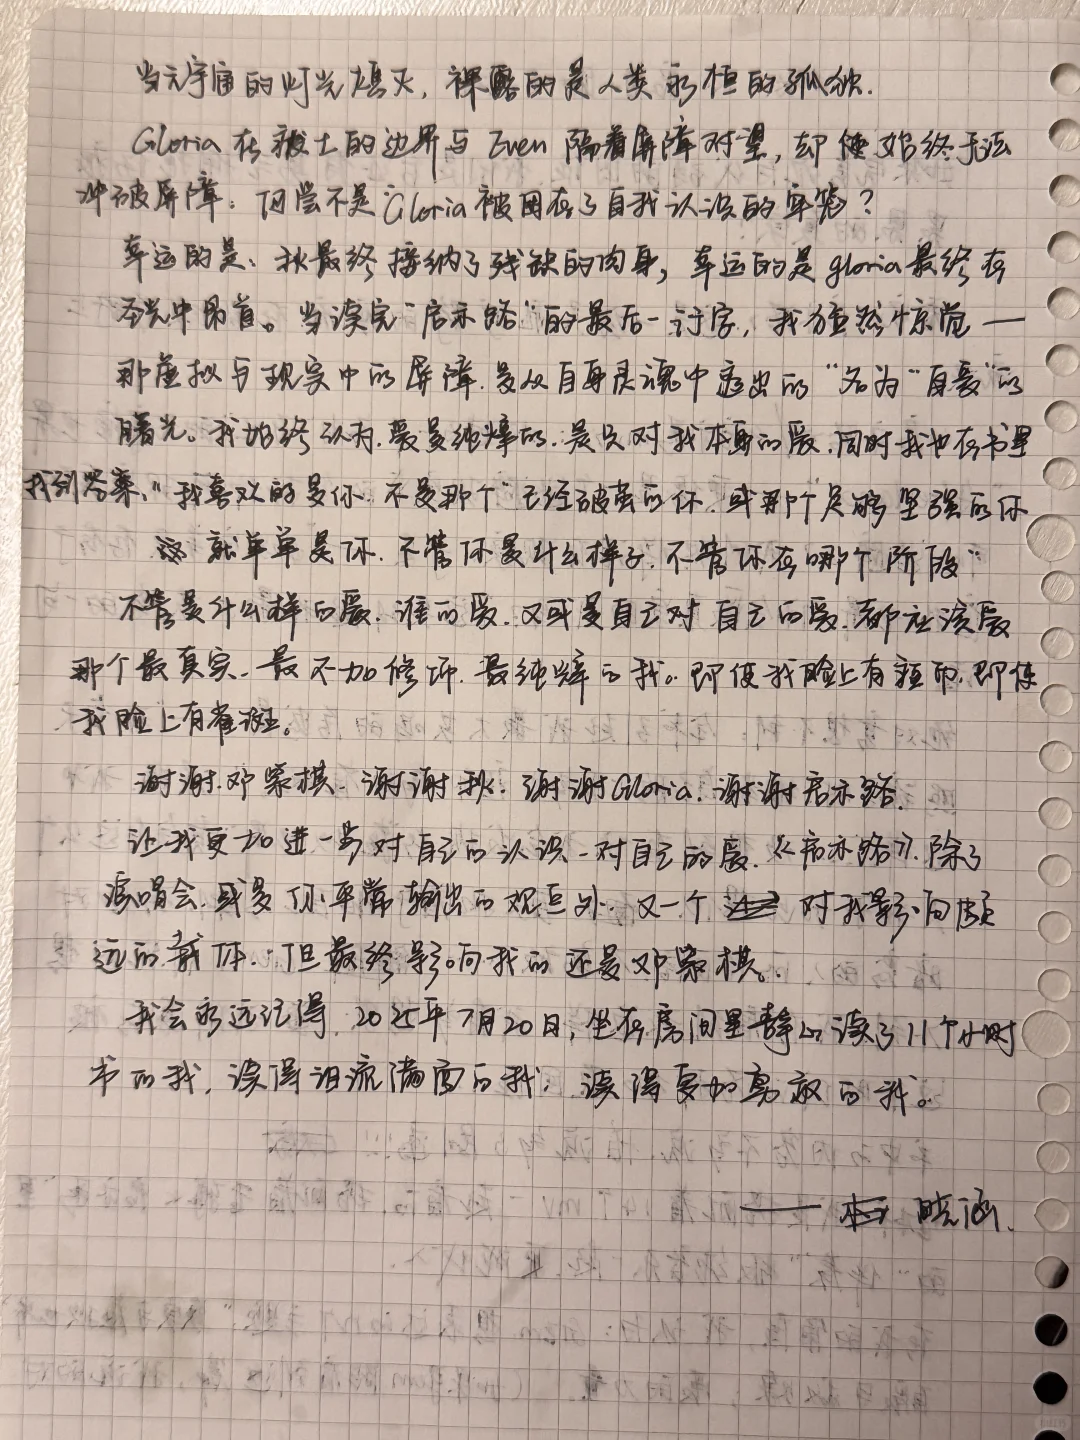 当元宇宙的灯光熄灭，裸露的是人类永恒的孤独.
Gloria在救土的边界与Even隔着屏障对望，却便始终无法
冲破屏障. 何尝不是Gloria被困在了自我认识的牢笼？
幸运的是、秋最终接纳了残缺的肉身，幸运的是gloria最终在
圣光中昂首。当读完“启示路”的最后一行字，我方豁然惊觉——
那虚拟与现实中的屏障.是从自身灵魂中透出的“名为“自爱”的
曙光。我始终认为.爱是纯粹的.是只对我本身的爱.同时我也在书里
找到答案、“我喜欢的是你.不是那个“已经破茧的你.或那个足够坚强的你
就单单是你.不管你是什么样子.不管你在哪个阶段”
不管是什么样的爱.谁的爱.又或是自己对自己的爱.都应该爱
那个最真实、最不加修饰.最纯粹的我。即使我脸上有痘印.即使
我脸上有雀斑。
谢谢.邓紫棋.谢谢秋.谢谢Gloria.谢谢启示路.
让我更加进一步对自己的认识、对自己的爱.《启示路》.除了
演唱会.或是你平常输出的观点外.又一个 对我影响颇
远的载体.但最终影响我的还是邓紫棋。
我会永远记得 2025年7月20日，坐在房间里静心读了11个小时
书的我，读得泪流满面的我，读得更加勇敢的我。
—— 皓涵.